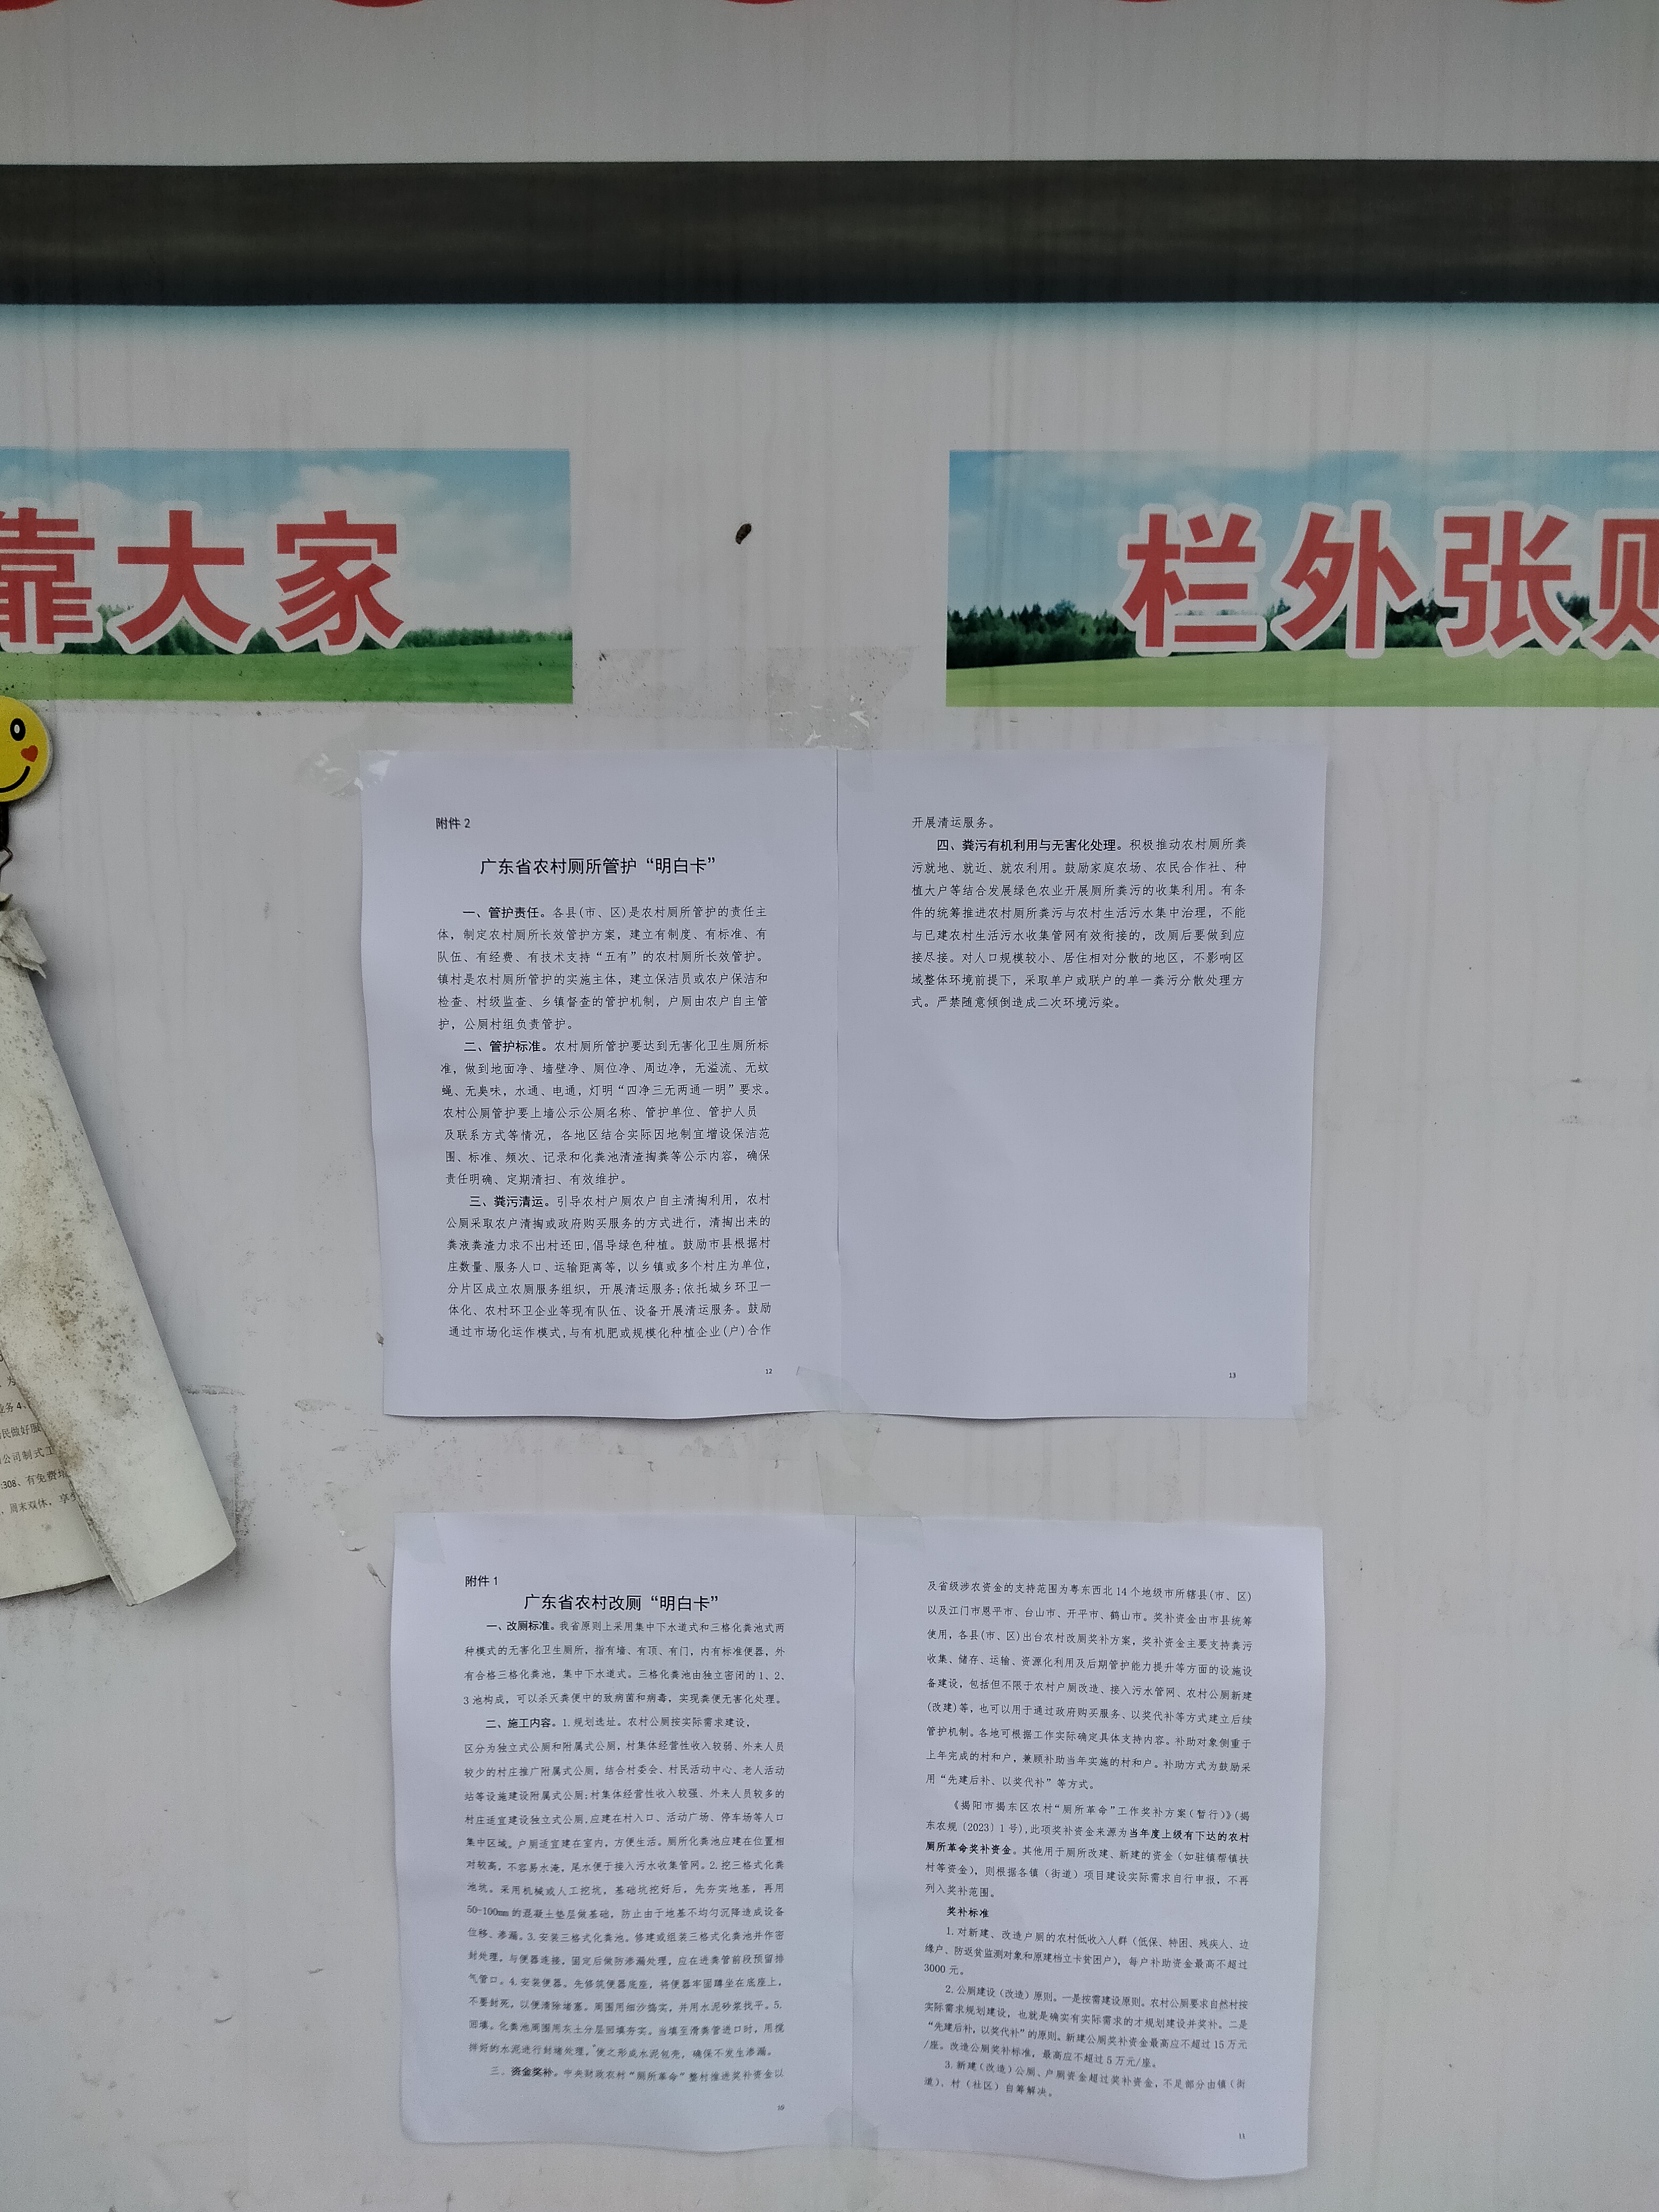 靠大家
栏外张贴
附件 2
广东省农村厕所管护“明白卡”
一、管护责任。各县(市、区)是农村厕所管护的责任主
体，制定农村厕所长效管护方案，建立有制度、有标准、有
队伍、有经费、有技术支持“五有”的农村厕所长效管护。
镇村是农村厕所管护的实施主体，建立保洁员或农户保洁和
检查、村级监查、乡镇督查的管护机制，户厕由农户自主管
护，公厕村组负责管护。
二、管护标准。农村厕所管护要达到无害化卫生厕所标
准，做到地面净、墙壁净、厕位净、周边净，无溢流、无蚊
蝇、无臭味，水通、电通，灯明“四净三无两通一明”要求。
农村公厕管护要上墙公示公厕名称、管护单位、管护人员
及联系方式等情况，各地区结合实际因地制宜增设保洁范
围、标准、频次、记录和化粪池清渣掏粪等公示内容，确保
责任明确、定期清扫、有效维护。
三、粪污清运。引导农村户厕农户自主清掏利用，农村
公厕采取农户清掏或政府购买服务的方式进行，清掏出来的
粪液粪渣力求不出村还田,倡导绿色种植。鼓励市县根据村
庄数量、服务人口、运输距离等，以乡镇或多个村庄为单位，
分片区成立农厕服务组织，开展清运服务;依托城乡环卫一
体化、农村环卫企业等现有队伍、设备开展清运服务。鼓励
通过市场化运作模式,与有机肥或规模化种植企业(户)合作
12
开展清运服务。
四、粪污有机利用与无害化处理。积极推动农村厕所粪
污就地、就近、就农利用。鼓励家庭农场、农民合作社、种
植大户等结合发展绿色农业开展厕所粪污的收集利用。有条
件的统筹推进农村厕所粪污与农村生活污水集中治理，不能
与已建农村生活污水收集管网有效衔接的，改厕后要做到应
接尽接。对人口规模较小、居住相对分散的地区，不影响区
域整体环境前提下，采取单户或联户的单一粪污分散处理方
式。严禁随意倾倒造成二次环境污染。
13
附件 1
广东省农村改厕“明白卡”
一、改厕标准。我省原则上采用集中下水道式和三格化粪池式两
种模式的无害化卫生厕所，指有墙、有顶、有门，内有标准便器，外
有合格三格化粪池，集中下水道式。三格化粪池由独立密闭的 1、2、
3 池构成，可以杀灭粪便中的致病菌和病毒，实现粪便无害化处理。
二、施工内容。1.规划选址。农村公厕按实际需求建设，
区分为独立式公厕和附属式公厕，村集体经营性收入较弱、外来人员
较少的村庄推广附属式公厕，结合村委会、村民活动中心、老人活动
站等设施建设附属式公厕;村集体经营性收入较强、外来人员较多的
村庄适宜建设独立式公厕,应建在村入口、活动广场、停车场等人口
集中区域。户厕适宜建在室内，方便生活。厕所化粪池应建在位置相
对较高，不容易水淹，尾水便于接入污水收集管网。2.挖三格式化粪
池坑。采用机械或人工挖坑，基础坑挖好后，先夯实地基，再用
50-100mm 的混凝土垫层做基础，防止由于地基不均匀沉降造成设备
位移、渗漏。3.安装三格式化粪池。修建或组装三格式化粪池并作密
封处理，与便器连接，固定后做防渗漏处理，应在进粪管前段预留排
气管口。4.安装便器。先修筑便器底座，将便器牢固蹲坐在底座上，
不要封死，以便清除堵塞。周围用细沙捣实，并用水泥砂浆找平。5.
回填。化粪池周围用灰土分层回填夯实。当填至滑粪管进口时，用搅
拌好的水泥进行封堵处理，使之形成水泥包壳，确保不发生渗漏。
三、资金奖补。中央财政农村“厕所革命”整村推进奖补资金以
10
及省级涉农资金的支持范围为粤东西北 14 个地级市所辖县(市、区)
以及江门市恩平市、台山市、开平市、鹤山市。奖补资金由市县统筹
使用，各县(市、区)出台农村改厕奖补方案，奖补资金主要支持粪污
收集、储存、运输、资源化利用及后期管护能力提升等方面的设施设
备建设，包括但不限于农村户厕改造、接入污水管网、农村公厕新建
(改建)等，也可以用于通过政府购买服务、以奖代补等方式建立后续
管护机制。各地可根据工作实际确定具体支持内容。补助对象侧重于
上年完成的村和户，兼顾补助当年实施的村和户。补助方式为鼓励采
用“先建后补、以奖代补”等方式。
《揭阳市揭东区农村“厕所革命”工作奖补方案（暂行）》(揭
东农规〔2023〕1 号),此项奖补资金来源为当年度上级有下达的农村
厕所革命奖补资金。其他用于厕所改建、新建的资金（如驻镇帮镇扶
村等资金），则根据各镇（街道）项目建设实际需求自行申报，不再
列入奖补范围。
奖补标准
1.对新建、改造户厕的农村低收入人群（低保、特困、残疾人、边
缘户、防返贫监测对象和原建档立卡贫困户），每户补助资金最高不超过
3000 元。
2.公厕建设（改造）原则。一是按需建设原则。农村公厕要求自然村按
实际需求规划建设，也就是确实有实际需求的才规划建设并奖补。二是
“先建后补,以奖代补”的原则。新建公厕奖补资金最高应不超过 15 万元
/座。改造公厕奖补标准，最高应不超过 5 万元/座。
3.新建（改造）公厕、户厕资金超过奖补资金，不足部分由镇（街
道）、村（社区）自筹解决。
11
业务4、
民做好服
公司制式工
308、有免费
周末双休，享